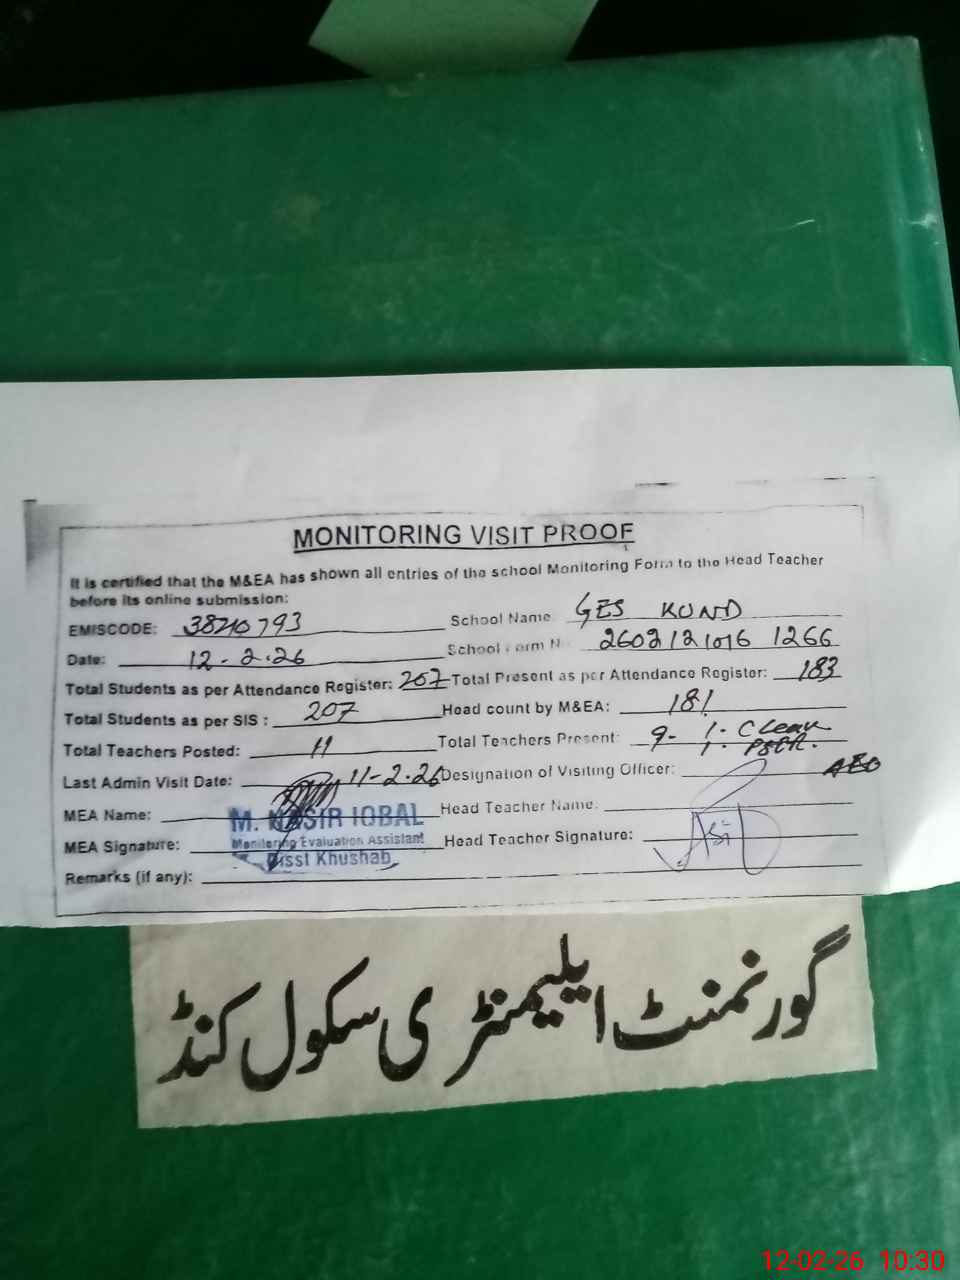 MONITORING VISIT PROOF
It is certified that the M&EA has shown all entries of the school Monitoring Form to the Head Teacher
before its online submission:
EMISCODE: 38210793 School Name: GES KUND
Date: 12-2-26 School Form N 2602121016 1266
Total Students as per Attendance Register: 207 Total Present as per Attendance Register: 183
Total Students as per SIS : 207 Head count by M&EA: 181
Total Teachers Posted: 11 Total Teachers Present: 9- 1. C Leave
1.
Last Admin Visit Date: 11-2-26 Designation of Visiting Officer: AEO
MEA Name: M. NASIR IQBAL Head Teacher Name:
Monitoring Evaluation Assistant
MEA Signature: Head Teacher Signature:
Disst Khushab
Remarks (if any):
گورنمنٹ ایلیمنٹری سکول کنڈ
12-02-26 10:30